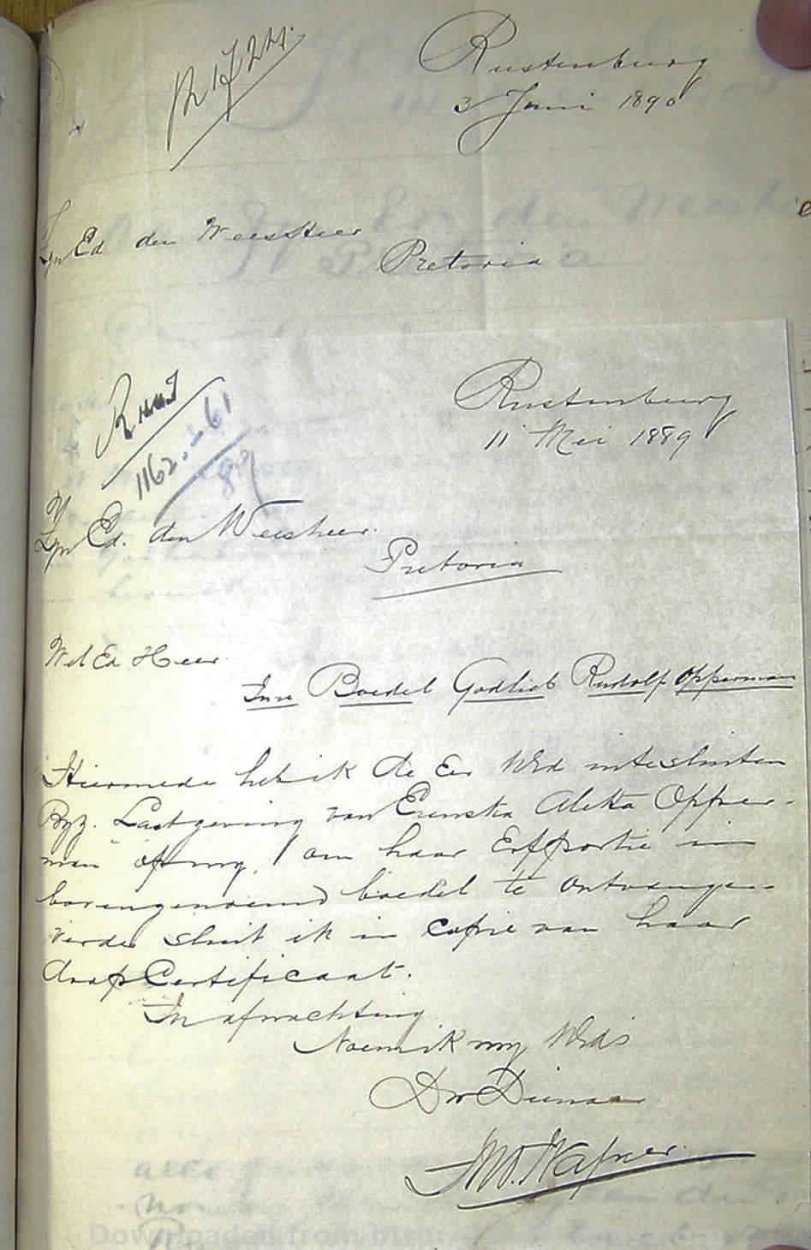 R1724.
Rustenburg
3 Juni 1890
Zyn Ed den Weesheer
Pretoria
1162. 61
89
Rustenburg
11 Mei 1889
Zyn Ed. den Weesheer.
Pretoria
Wel Ed Heer
In Boedel Godlieb Rudolf Opperman
Hiermede heb ik de Eer Wed intesluiten
Lastgeving van Aletta Opper-
man op my, om haar Erfportie in
bovengenoemd boedel te ontvangen.
verder sluit ik in Copie van haar
doop Certificaat.
In afwachting
Noem ik my Weds
Dw Dienaar